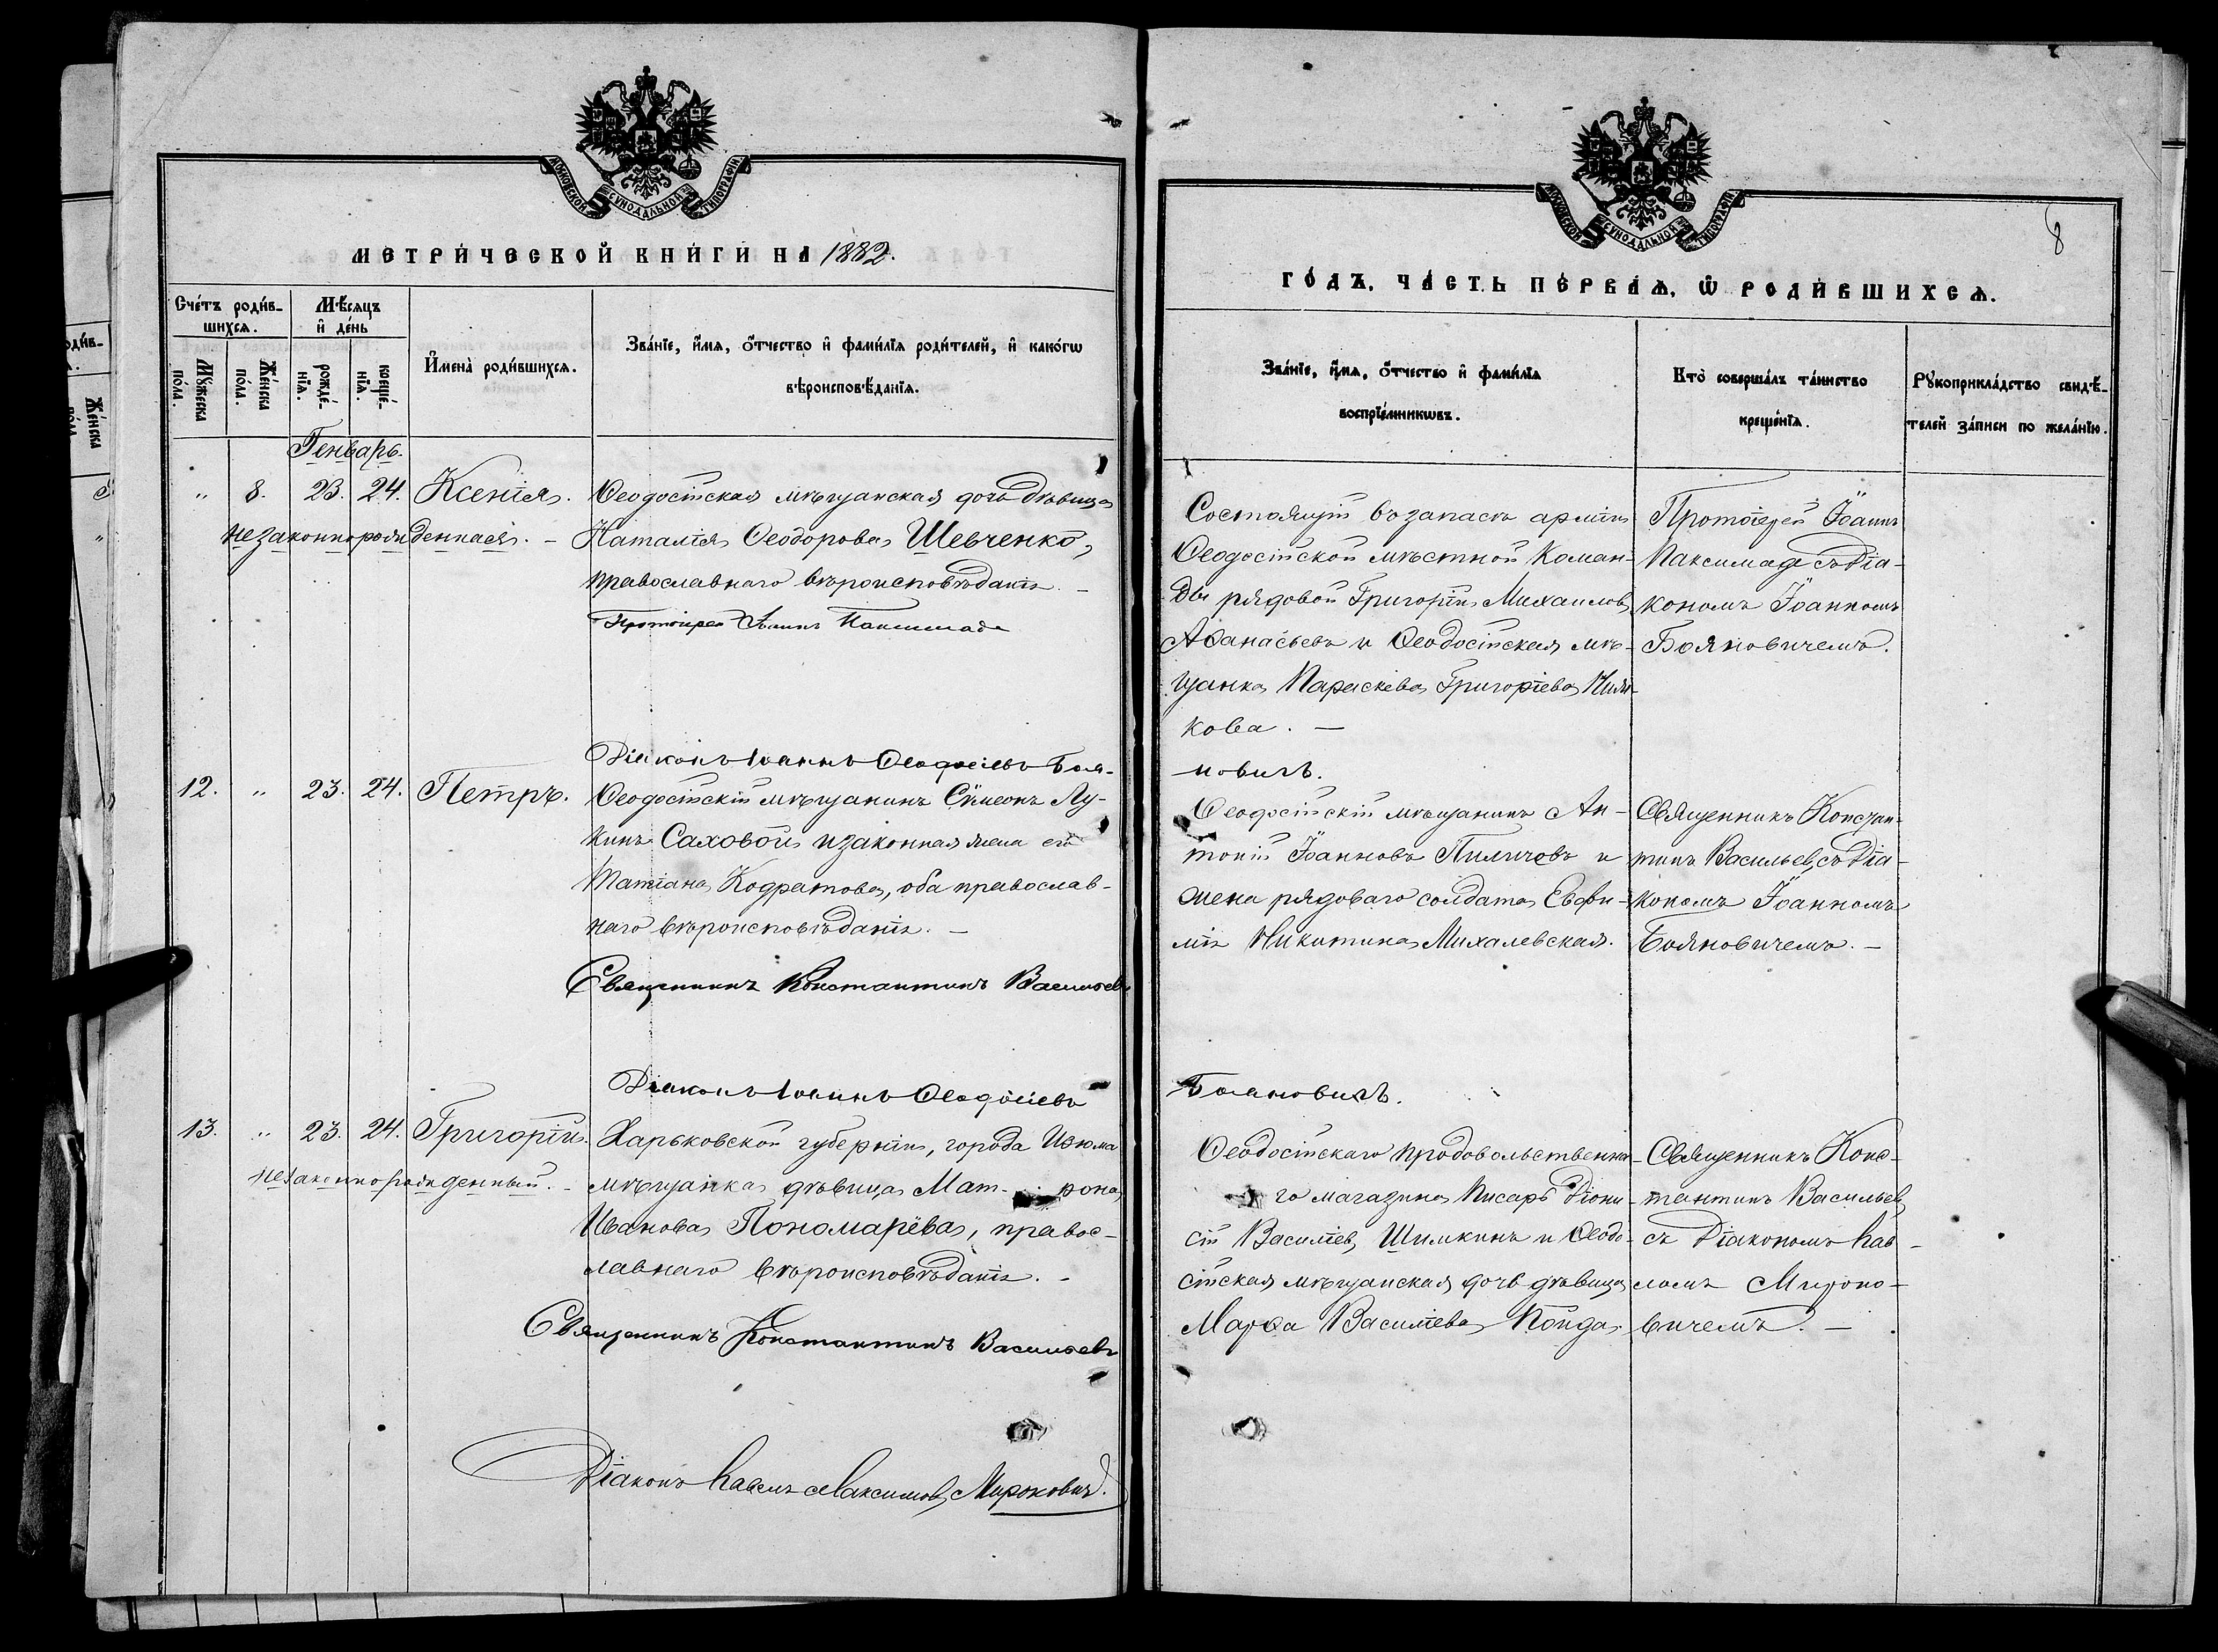 МОСКОВСКОЙ СѴНОДАЛЬНОЙ ТИПОГРАФІИ
МЕТРИ́ЧЕСКОЙ КНИ́ГИ НА 1882.
Сче́тъ роди́в-
шихсѧ.
Мѣ́сѧцъ
и҆ де́нь
Мꙋ́жеска
по́ла.
Же́нска
по́ла.
рожде́-
нїѧ.
креще́-
нїѧ.
И҆мена̀ роди́вшихсѧ.
Зва́нїе, и҆́мѧ, о҆́тчество и҆ фами́лїѧ роди́телей, и҆ како́гѡ
вѣроисповѣ́данїѧ.
Генварь.
" 8. 23. 24. Ксенія.
незаконнорожденная. –
Ѳеодосійская мѣщанская дочь дѣвица
Наталія Ѳеодорова Шевченко,
православнаго вѣроисповѣданія. –
Протоіерей Іоаннъ Паксимаде
Діаконъ Іоаннъ Ѳеодосіевъ Боя-
12. " 23. 24. Петръ.
Ѳеодосійскій мѣщанинъ Сѵмеонъ Лу-
кинъ Саховой и законная жена его
Татіана Кодратова, оба православ-
наго вѣроисповѣданія. –
Священникъ Константинъ Васильевъ
Діаконъ Іоаннъ Ѳеодосіевъ
13. " 23. 24. Григорій.
незаконнорожденный. –
Харьковской губерніи, города Изюма
мѣщанка дѣвица Мат- рона
Иванова Пономарёва, правос-
лавнаго вѣроисповѣданія. –
Священникъ Константинъ Васильевъ
Діаконъ Павелъ Максимовъ Мироновичъ.
8
МОСКОВСКОЙ СѴНОДАЛЬНОЙ ТИПОГРАФІИ
ГО́ДЪ, ЧА́СТЬ ПЕ́РВАѦ, Ѡ҆ РОДИ́ВШИХСѦ.
Зва́нїе, и҆́мѧ, о҆́тчество и҆ фами́лїѧ
воспрїе́мникѡвъ.
Кто̀ соверша́лъ та́инство
креще́нїѧ.
Рꙋкоприкла́дство свидѣ́-
телей за́писи по жела́нїю.
Состоящій въ запасѣ арміи
Ѳеодосійской мѣстной Коман-
ды рядовой Григорій Михаиловъ
Аѳанасьевъ и Ѳеодосійская мѣ-
щанка Параскева Григоріева
кова. –
Протоіерей Іоаннъ
Паксимаде съ Діа-
кономъ Іоанномъ
Бояновичемъ.
новичъ.
Ѳеодосійскій мѣщанинъ Ан-
тоній Іоанновъ Пиличевъ и
жена рядоваго солдата Евфи-
мія Никитина Михалевская.
Священникъ Констан-
тинъ Васильевъ, съ Діа-
кономъ Іоанномъ
Бояновичемъ. –
Бояновичъ.
Ѳеодосійскаго продовольственна-
го магазина писарь Діони-
сій Василіевъ Шишкинъ и Ѳеодо-
сійская мѣщанская дочь дѣвица
Марѳа Василіева Пойда.
Священникъ Конс-
тантинъ Васильевъ
съ Діакономъ Пав-
ломъ Мироно-
вичемъ. –